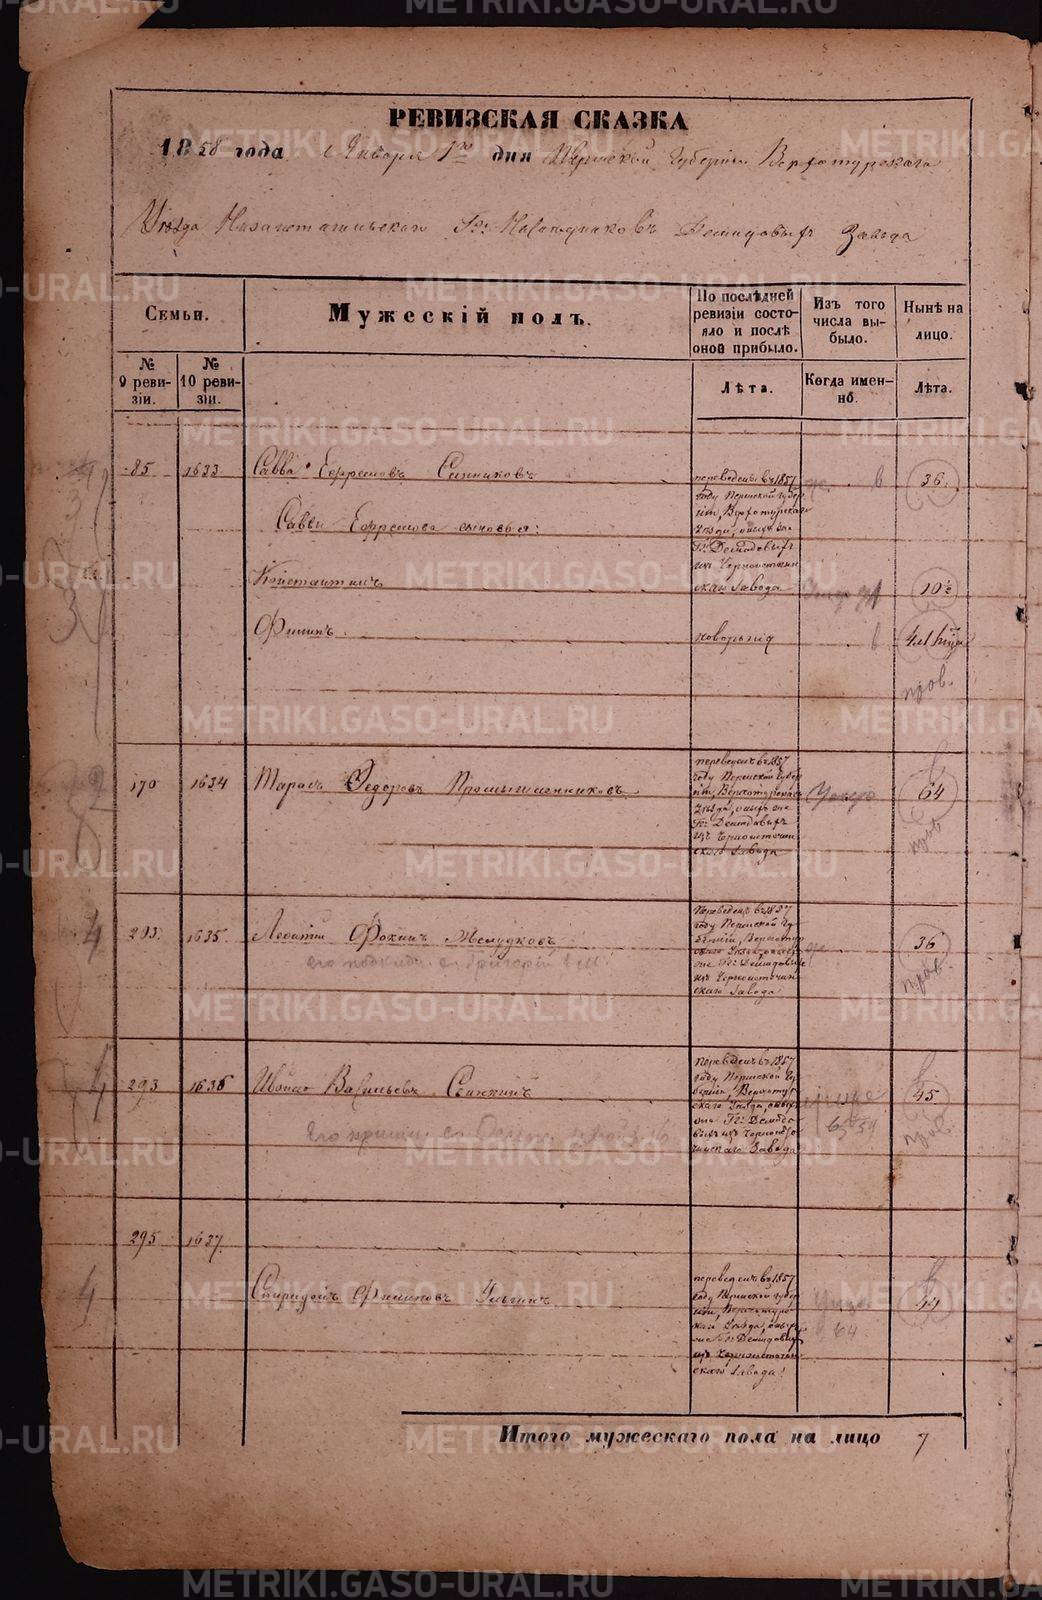 РЕВИЗСКАЯ СКАЗКА
1858 года Января 1го дня Пермской Губерніи Верхотурскаго
Уѣзда Нижнетагильскаго Гг: Наслѣдниковъ Демидовыхъ Завода
Семьи.
Мужескій полъ.
По послѣдней ревизіи состояло и послѣ оной прибыло.
Изъ того числа выбыло.
Нынѣ на лицо.
№ 9 ревизіи.
№ 10 ревизіи.
Лѣта.
Когда именно.
Лѣта.
85 1633 Савва Ефремовъ Санниковъ
переведены въ 1857
году Пермской Губер
ніи, Верхотурскаго
Уѣзда,
Гг: Демидовыхъ
изъ Черноисточин
скаго Завода
36
Саввы Ефремова сыновья:
Константинъ
10½
Филипъ
новорожд
пров.
170 1634 Тарасъ Федоровъ Промышленниковъ
переведенъ въ 1857
году Пермской Губер
ніи, Верхотурскаго
Уѣзда,
Гг: Демидовыхъ
изъ Черноисточин
скаго Завода
умер
64
пров
293. 1635. Леонтій Фокинъ Желудковъ
Переведенъ въ 1857
году Пермской Гу
берніи, Верхотур
скаго Уѣзда,
Гг: Демидовыхъ
изъ Черноисточин
скаго Завода
36
пров.
его подкид. Григорій
293 1636 Иванъ Васильевъ
переведенъ въ 1857
году Пермской Гу
берніи, Верхотур
скаго Уѣзда,
Гг: Демидо
выхъ изъ Черноисто
чинскаго Завода
45
пров.
295 1637
Спиридонъ Филиповъ
переведенъ въ 1857
году Пермской Губер
ніи, Верхотурс
каго Уѣзда,
Гг: Демидовыхъ
изъ Черноисточин
скаго Завода
64
44
Итого мужескаго пола на лицо 7
METRIKI.GASO-URAL.RU